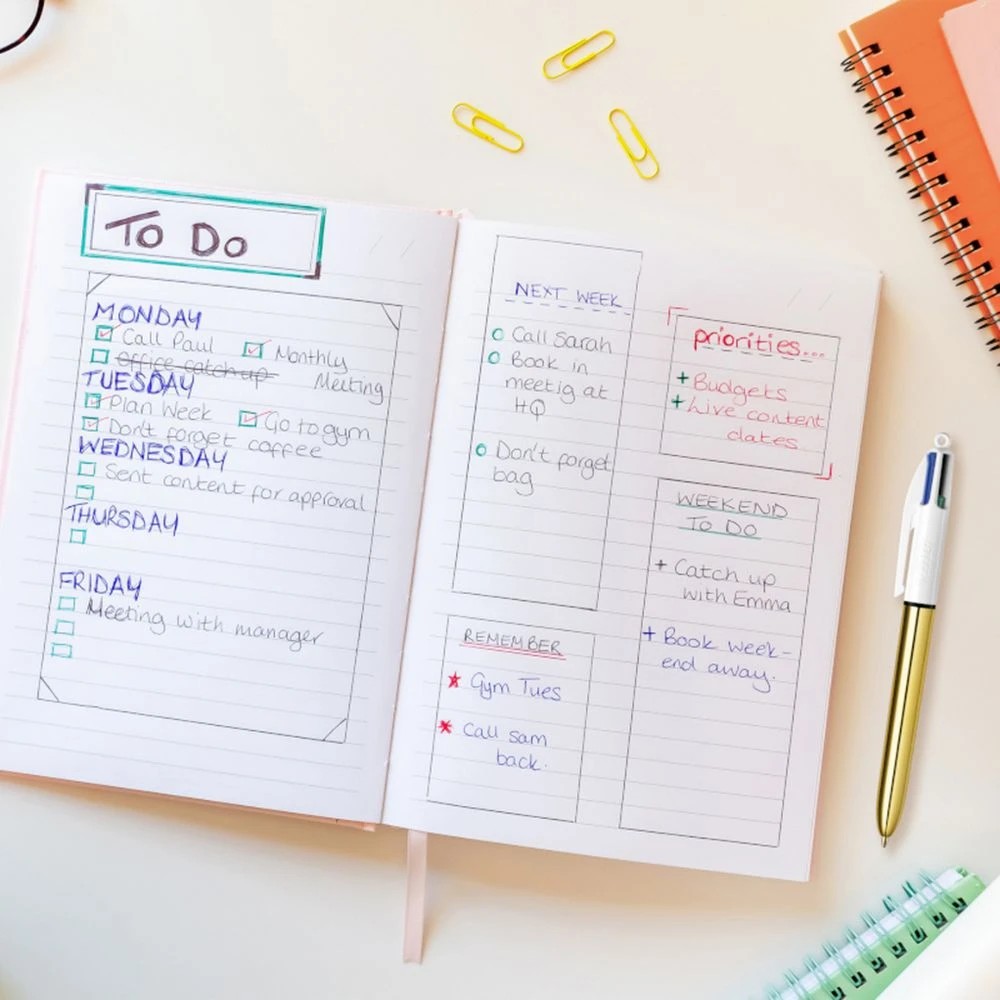 To Do
MONDAY
Call Paul Monthly
Office catch up Meeting
TUESDAY
Plan Week Go to gym
Don't forget coffee
WEDNESDAY
Sent content for approval
THURSDAY
FRIDAY
Meeting with manager
NEXT WEEK
Call Sarah
Book in
meetig at
HQ
Don't forget
bag
REMEMBER
Gym Tues
Call sam
back.
priorities...
+ Budgets
+ Live content
dates
WEEKEND
TO DO
+ Catch up
with Emma
+ Book week-
end away.